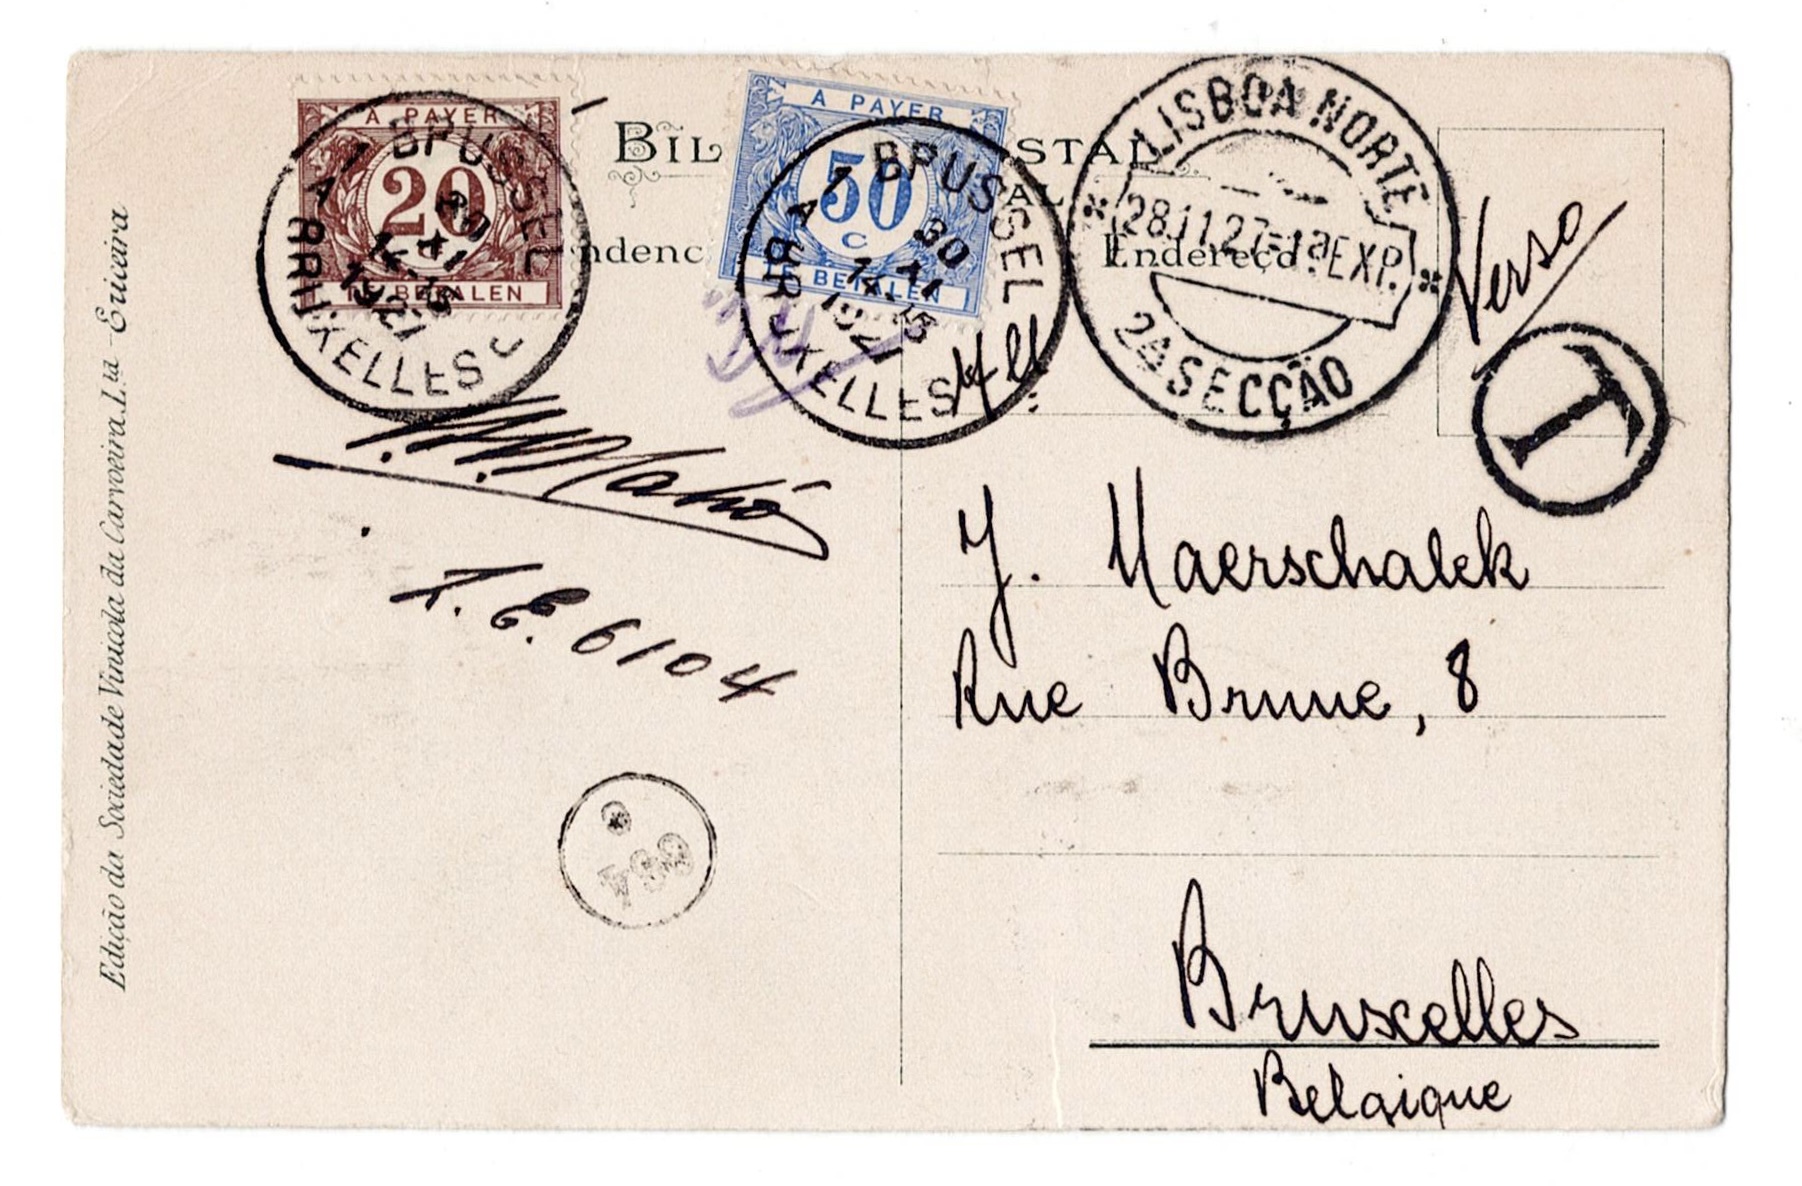 A PAYER
20
TE BETALEN
BRUSSEL
1 A
30 XI
14-15
1927
BRUXELLES
BIL STAL
ndenc
A PAYER
50
C
TE BETALEN
BRUSSEL
1 A
30
XI
14-15
1927
BRUXELLES
LISBOA NORTE
28.11.27-1ª EXP.
2ª SECÇÃO
Endereço
Verso
T
I. E. 6104
J. Maerschalck
Rue Brune, 8
Bruxelles
Belgique
Edição da Sociedade Vinicola da Carvoeira, Lta - Ericeira